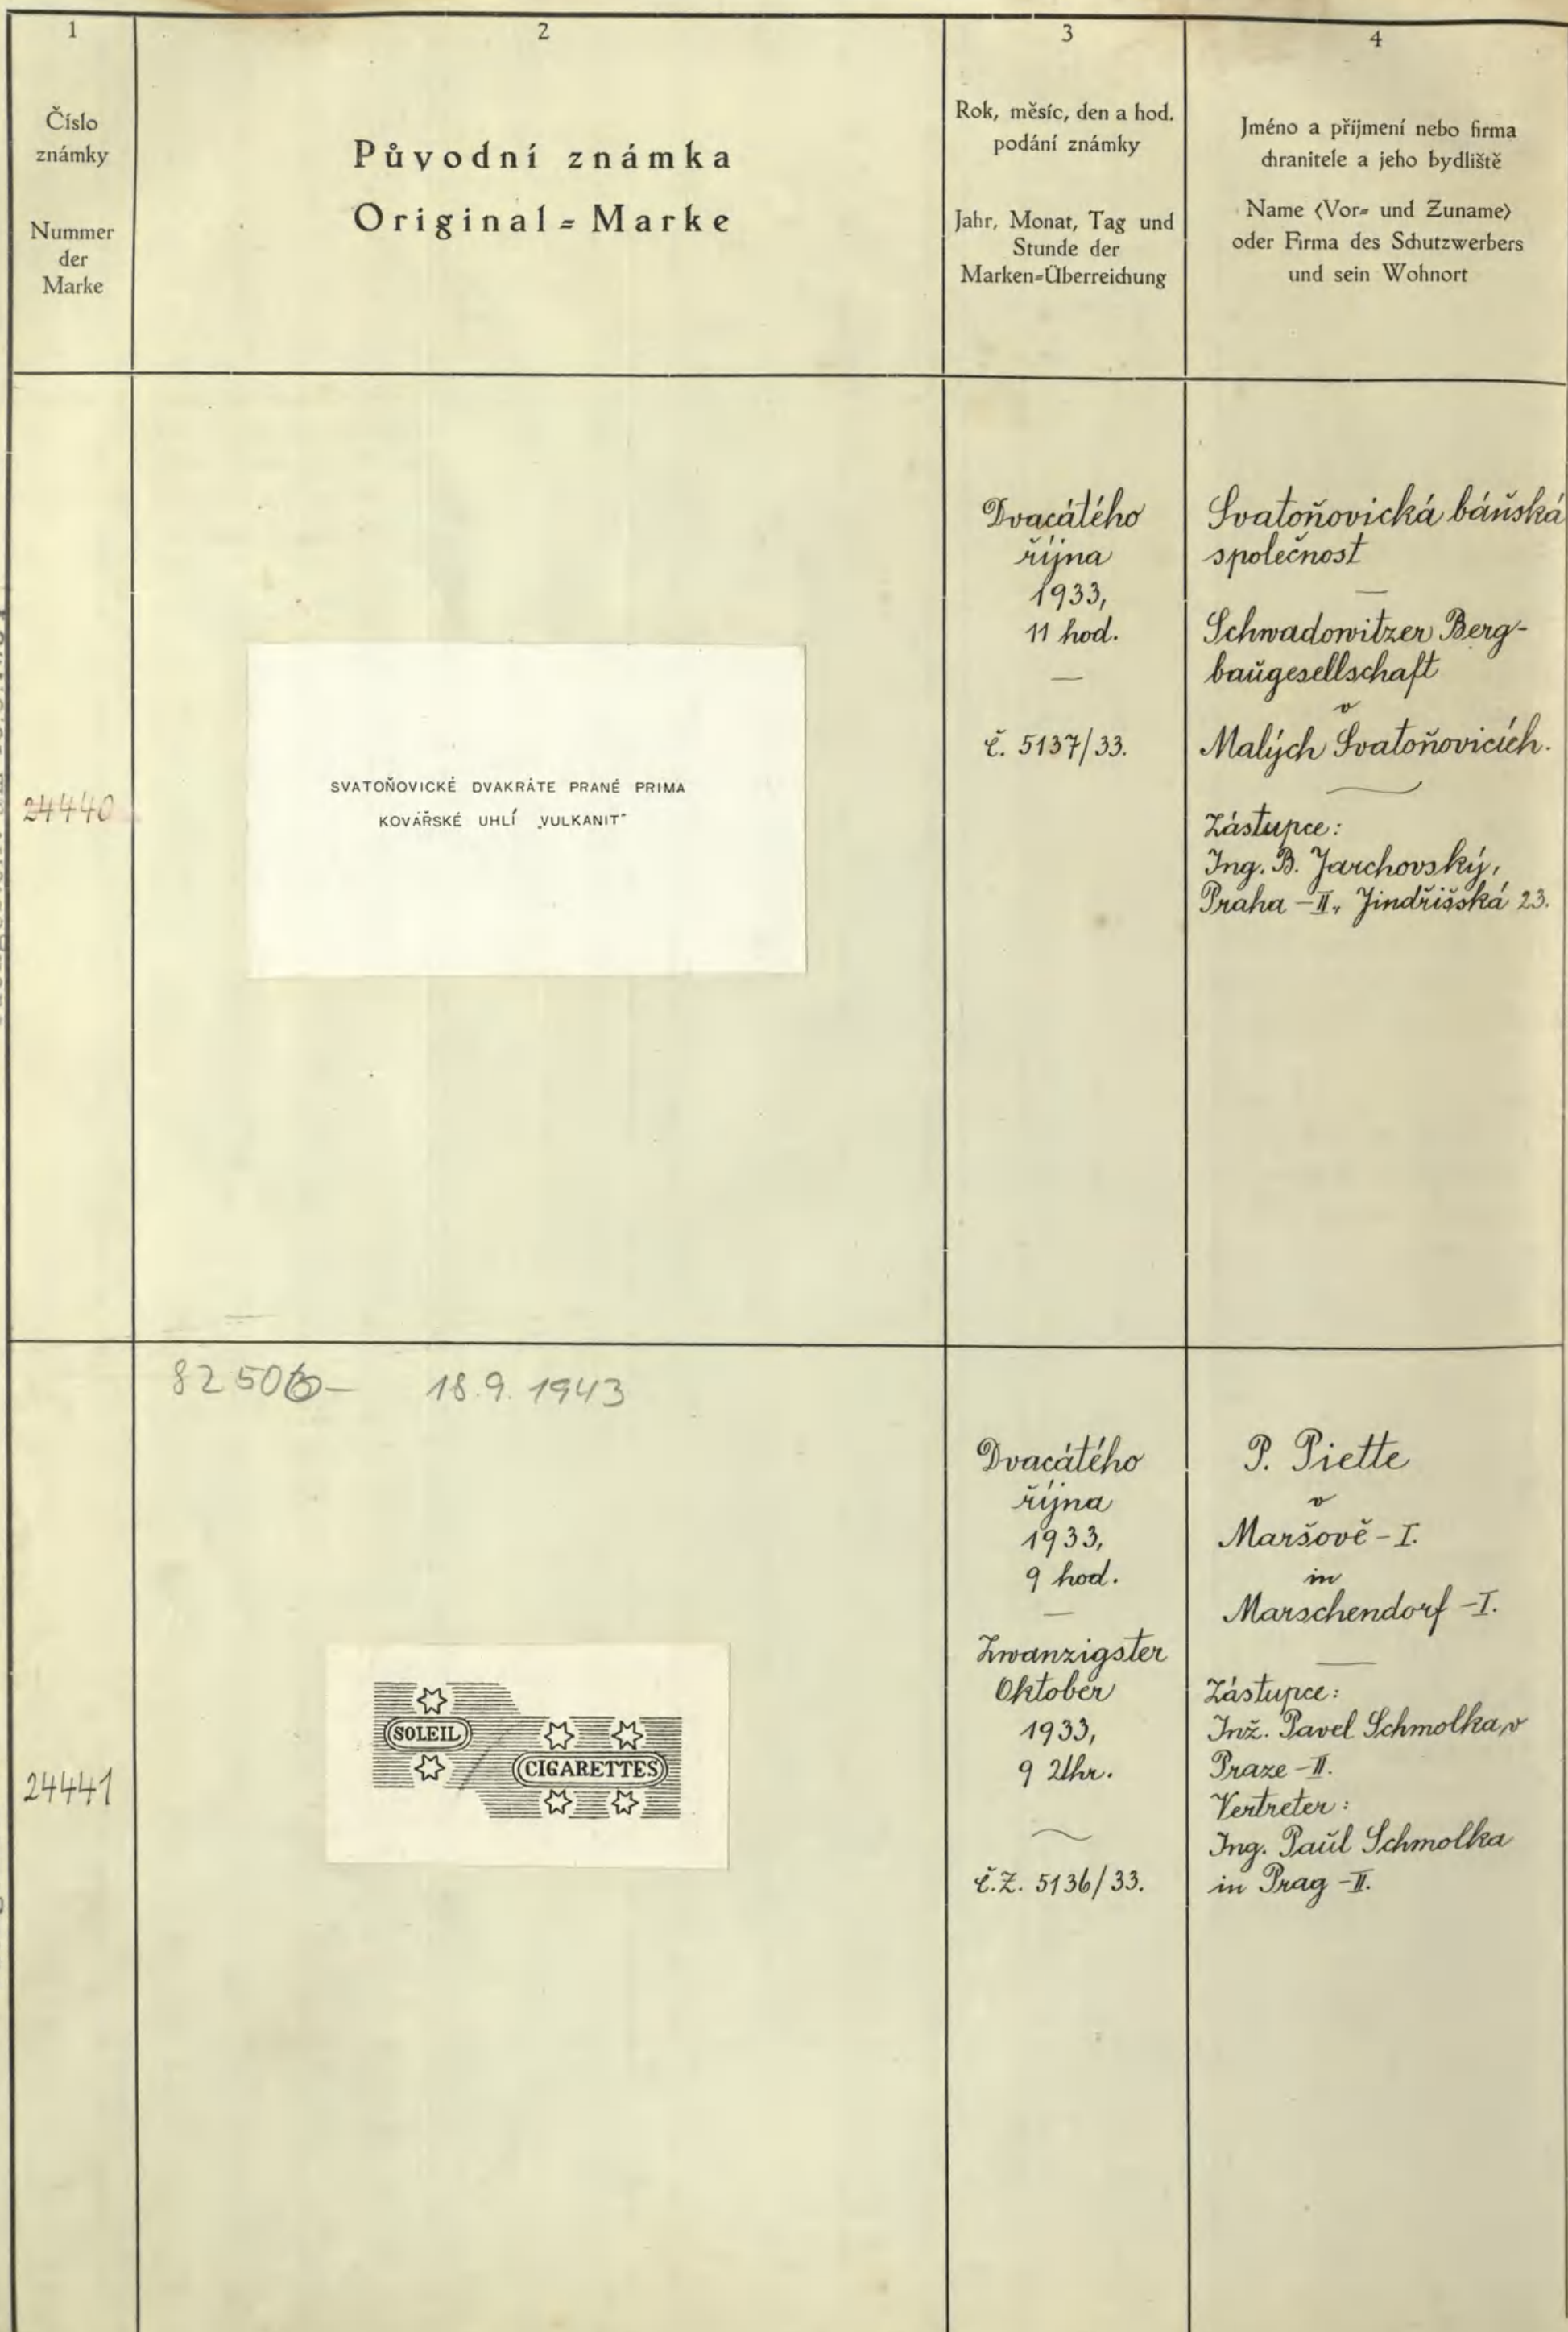 1
Číslo
známky
Nummer
der
Marke
2
Původní známka
Original=Marke
3
Rok, měsíc, den a hod.
podání známky
Jahr, Monat, Tag und
Stunde der
Marken=Überreichung
4
Jméno a příjmení nebo firma
chranitele a jeho bydliště
Name (Vor= und Zuname)
oder Firma des Schutzwerbers
und sein Wohnort
24440
SVATOŇOVICKÉ DVAKRÁTE PRANÉ PRIMA
KOVÁŘSKÉ UHLÍ „VULKANIT"
Dvacátého
října
1933,
11 hod.
—
č. 5137/33.
Svatoňovická báňská
společnost
—
Schwadowitzer Berg-
baŭgesellschaft
v
Malých Svatoňovicích.
Zástupce:
Ing. B. Jarchovský,
Praha-II., Jindřišská 23.
24441
18.9.1943
SOLEIL
CIGARETTES
Dvacátého
října
1933,
9 hod.
—
Zwanzigster
Oktober
1933,
9 Uhr.
č.Z. 5136/33.
P. Piette
v
Maršově-I.
in
Marschendorf-I.
—
Zástupce:
Inž. Pavel Schmolka v
Praze-II.
Vertreter:
Ing. Paŭl Schmolka
in Prag-II.